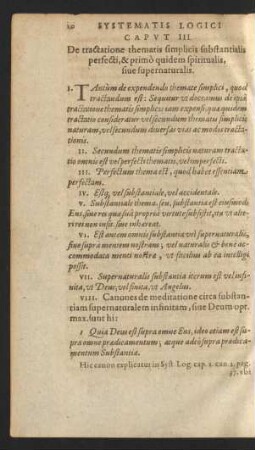 20 SYSTEMATIS LOGICI
CAPVT III.
De tractatione thematis simplicis substantialis
perfecti, & primò quidem spiritualis,
siue supernaturalis.
I. TAntum de expendendo themate simplici, quod
tractandum est: Sequitur vt dicamus de ipsa
tractatione thematis simplicis iam expensi, quæ quidem
tractatio consideratur vel secundum thematis simplicis
naturam, vel secundum diuersas vias ac modos tracta-
tionis.
II. Secundum thematis simplicis naturam tracta-
tio omnis est vel perfecti thematis, vel imperfecti.
III. Perfectum thema est, quod habet essentiam
perfectam.
IV. Estq, vel substantiale, vel accidentale.
V. Substantiale thema, seu, substantia est eiusmodi
Ens, siue res quæ suâ propriâ virtute subsistit, ita vt in
alio non insit siue inhæreat.
VI. Est autem omnis substantia vel supernaturalis,
siue supra mentem nostram; vel naturalis & bene ac-
commodata menti nostræ, vt facilius ab ea intelligi
possit.
VII. Supernaturalis substantia iterum est vel infi-
nita, vt Deus; vel finita, vt Angelus.
VIII. Canones de meditatione circa substan-
tiam supernaturalem infinitam, siue Deum opt.
max. sunt hi:
1 Quia Deus est supra omne Ens, ideo etiam est su-
pra omne prædicamentum, atque adeò supra prædica-
mentum Substantiæ.
Hic canon explicatur in Syst. Log. cap. 2. can. 1. pag.